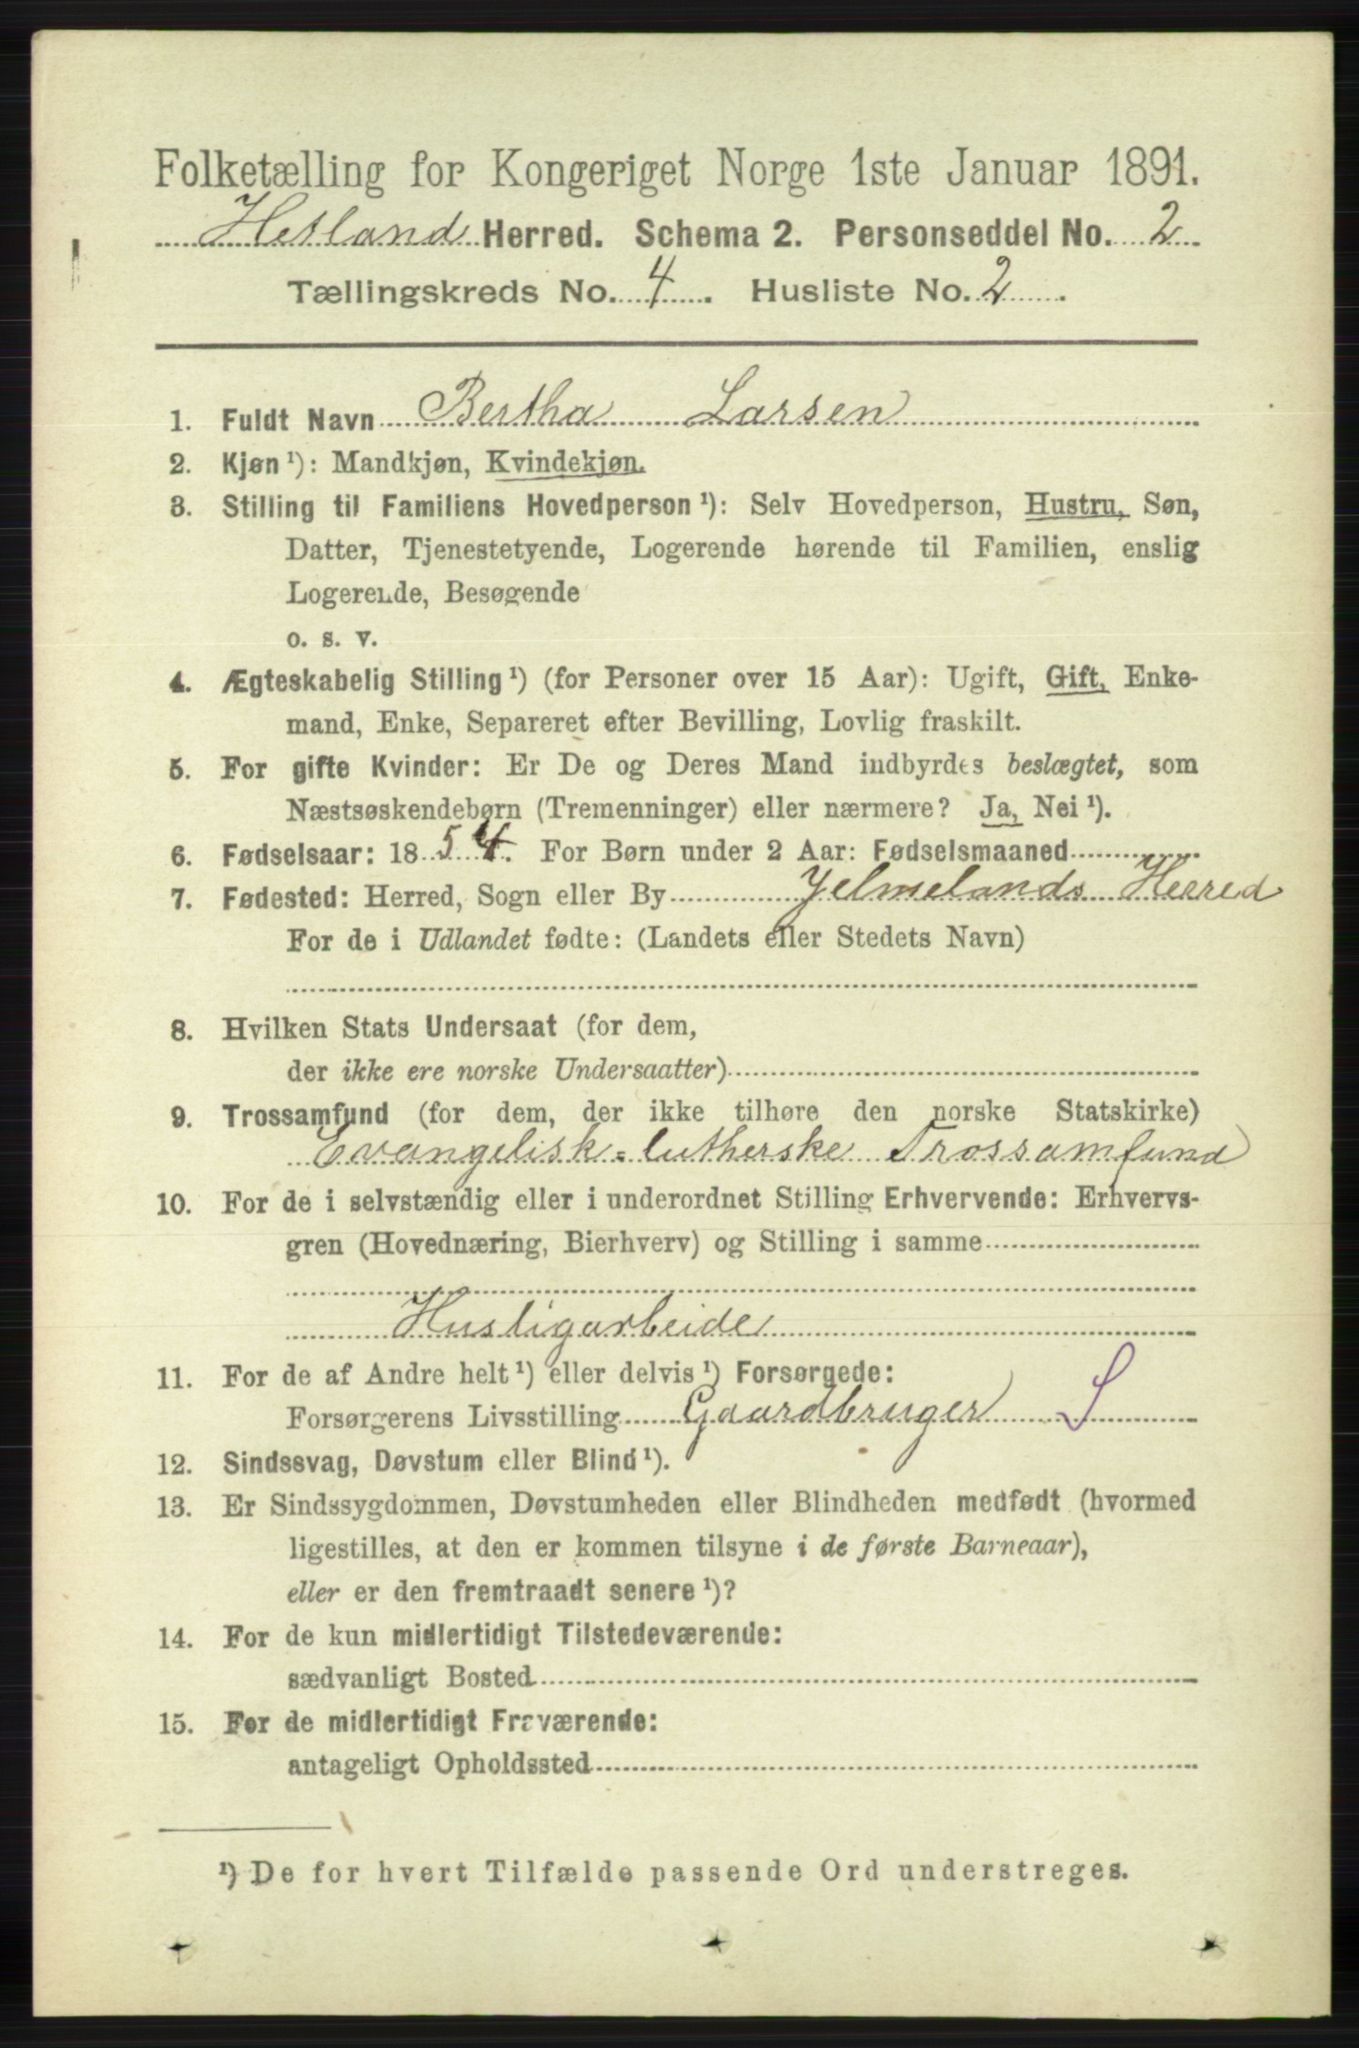 Folketælling for Kongeriget Norge 1ste Januar 1891.
Hetland Herred. Schema 2. Personseddel No. 2
Tællingskreds No. 4. Husliste No. 2.
1. Fuldt Navn Bertha Larsen
2. Kjøn ¹): Mandkjøn, Kvindekjøn.
3. Stilling til Familiens Hovedperson ¹): Selv Hovedperson, Hustru, Søn,
Datter, Tjenestetyende, Logerende hørende til Familien, enslig
Logerende, Besøgende
o. s. v.
4. Ægteskabelig Stilling ¹) (for Personer over 15 Aar): Ugift, Gift, Enke-
mand, Enke, Separeret efter Bevilling, Lovlig fraskilt.
5. For gifte Kvinder: Er De og Deres Mand indbyrdes beslægtet, som
Næstsøskendebørn (Tremenninger) eller nærmere? Ja, Nei ¹).
6. Fødselsaar: 1854. For Børn under 2 Aar: Fødselsmaaned
7. Fødested: Herred, Sogn eller By Jelmelands Herred
For de i Udlandet fødte: (Landets eller Stedets Navn)
8. Hvilken Stats Undersaat (for dem,
der ikke ere norske Undersaatter)
9. Trossamfund (for dem, der ikke tilhøre den norske Statskirke)
Evangelisk-lutherske Trossamfund
10. For de i selvstændig eller i underordnet Stilling Erhvervende: Erhvervs-
gren (Hovednæring, Bierhverv) og Stilling i samme
Husligarbeide
11. For de af Andre helt ¹) eller delvis ¹) Forsørgede:
Forsørgerens Livsstilling Gaardbruger S
12. Sindssvag, Døvstum eller Blind ¹).
13. Er Sindssygdommen, Døvstumheden eller Blindheden medfødt (hvormed
ligestilles, at den er kommen tilsyne i de første Barneaar),
eller er den fremtraadt senere ¹)?
14. For de kun midlertidigt Tilstedeværende:
sædvanligt Bosted
15. For de midlertidigt Fraværende:
antageligt Opholdssted
¹) De for hvert Tilfælde passende Ord understreges.